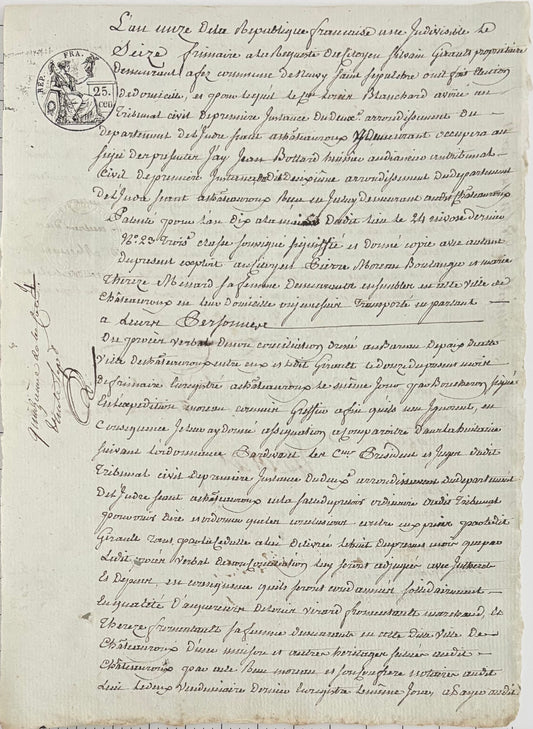 L'an onze de la Republique francaise une Indivisible le
Seize frimaire a la Requete du Citoyen Silvain Girault proprietaire
demeurant a fez commune de Neuvy Saint Sepulchre ou il fait Election
de Domicile, et pour lequel le Cen Blanchard avoué au
Tribunal civil de premiere Instance du deuxe arrondissement du
departement de l'Indre séant a Châteauroux y demeurant occupera au
Jay Jean Bottard huissier audiancier au tribunal
Civil de premiere Instance dudit deuxieme arrondissement du departement
de l'Indre séant a châteauroux demeurant audit Châteauroux
Patenté pour l'an dix a la mairie dudit lieu le 24 nivose dernier
No. 23 Troise classe soussigné signiffié et donné copie avec autant
du present exploit au Citoyen Pierre Moreau Boulanger et marie
Thereze Menard sa femme demeurants ensembles en cette ville de
Châteauroux en leur domicile ou je me suis Transporté en parlant
a leurs Personnes
Du procès verbal de non conciliation dressé au Bureau de paix de cette
ville de Châteauroux entre eux et ledit Girault le douze du present mois
de frimaire Enregistré a Châteauroux le même jour par Boucheron signé
En Expedition moreau commis Greffier a ce qu'ils n'en Ignorent, en
Consequence je leur ay donné assignation a Comparoître dans la huitaine
suivant l'ordonnance Pardevant les Cens President et Juges dudit
Tribunal civil de premiere Instance du deuxe arrondissement du departement
de l'Indre séant a Châteauroux en la salle du pressoir ordinaire dudit Tribunal
pour voir dire et ordonner que les conclusions contre eux prises par ledit
Girault tant par la Cedulle a lui delivrée le huit du present mois que par
Ledit procès verbal de non Conciliation luy seront adjugées avec Intherêt
Et Depens, en consequence qu'ils seront condamnés sollidairement
En qualité d'acquereurs de Verard fromentault marchand, et
Thereze fromentault sa femme demeurants en cette ditte ville de
Châteauroux D'une maison et autres heritages situés audit
Châteauroux par acte Reçu moreau et son confrere notaires audit
Lieu le deux Vendemiaire dernier Enregistré le même jour,
REP. FRA.
25.
CEN